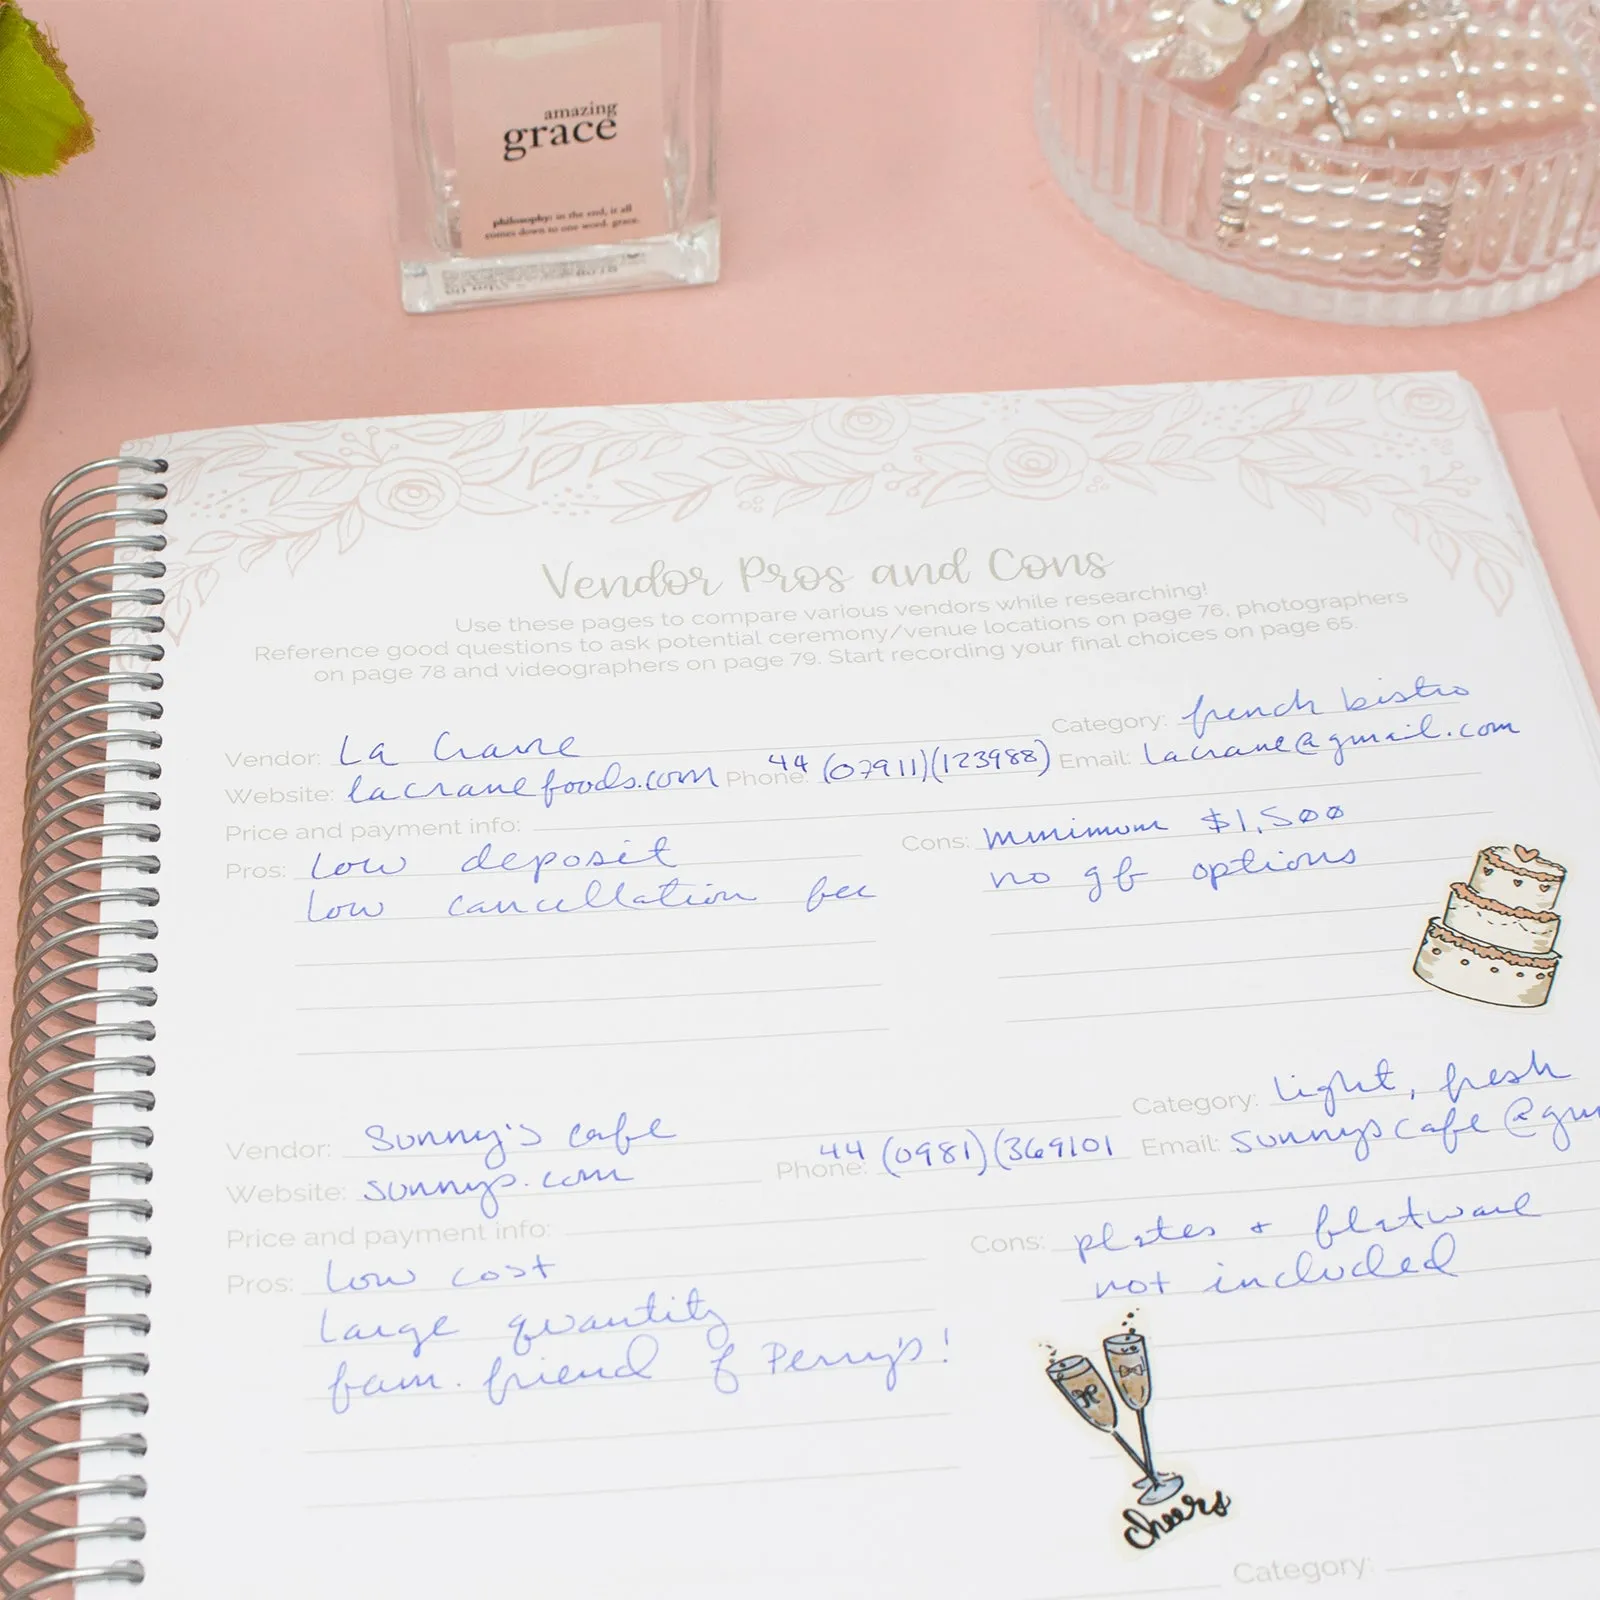 amazing
grace
philosophy: in the end, it all
comes down to one word. grace.
Vendor Pros and Cons
Use these pages to compare various vendors while researching!
Reference good questions to ask potential ceremony/venue locations on page 76, photographers
on page 78 and videographers on page 79. Start recording your final choices on page 65.
Vendor: La Crane Category: french bistro
Website: lacranefoods.com Phone: 44 (07911)(123988) Email: lacrane@gmail.com
Price and payment info:
Pros: Low deposit Cons: minimum $1,500
low cancellation fee no gf options
Vendor: Sunny's cafe Category: light, fresh
Website: sunnys.com Phone: 44 (0981)(369101 Email: sunnyscafe@gm
Price and payment info:
Pros: low cost Cons: plates + flatware
large quantity not included
fam. friend of Perry's!
cheers
Category: